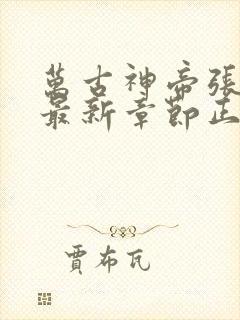 萬古神帝張
最新章節正
賈布瓦